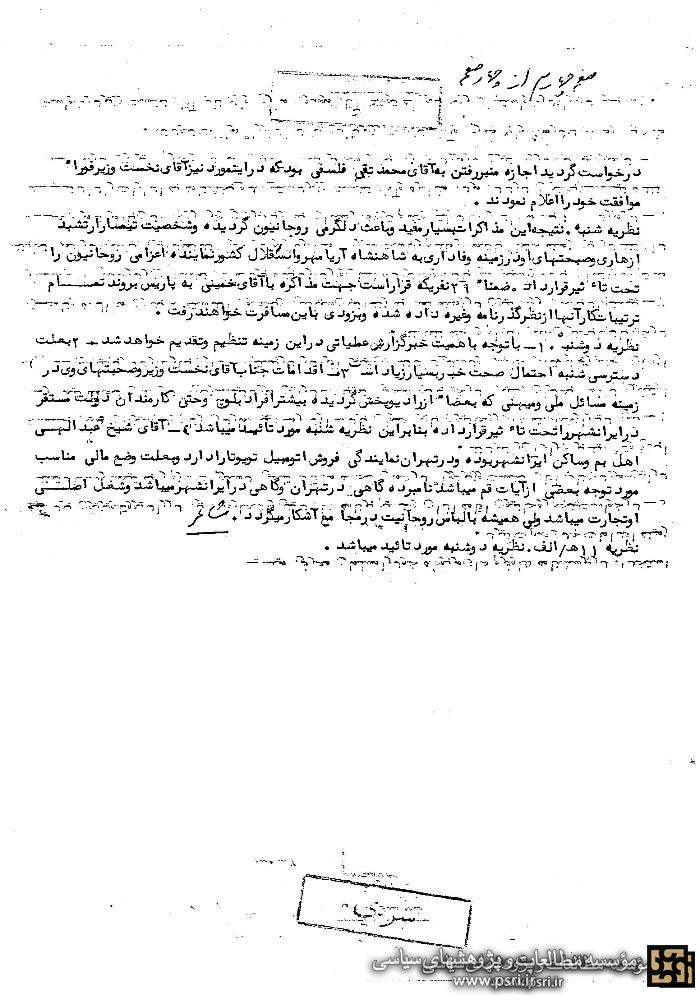 صفحه چهارم از چهار صفحه
درخواست گردید اجازه منبر رفتن به آقای محمد تقی فلسفی بود که در اینمورد نیز آقای نخست وزیر فورا"
موافقت خود را اعلام نمودند .
نظریه شنبه . نتیجه این مذاکرات بسیار مفید وباعث دلگرمی روحانیون گردیده وشخصیت تیمسار ارتشبد
ازهاری وصحبتهای او در زمینه وفاداری به شاهنشاه آریامهر واستقلال کشور نماینده اعزامی روحانیون را
تحت تاء ثیر قرار داد . ضمنا" نفریکه قرار است جهت مذاکره با آقای خمینی به پاریس بروند تمام
ترتیبات کار آنها از نظر گذرنامه وغیره داده شده وبزودی باین مسافرت خواهند رفت .
نظریه دوشنبه . ۱ـ با توجه باهمیت خبر گزارش عملیاتی در این زمینه تنظیم وتقدیم خواهد شد . ۲ـ بعلت
دسترسی شنبه احتمال صحت خبر بسیار زیاد است ۳ـ اقدامات جناب آقای نخست وزیر وصحبتهای وی در
زمینه مسائل ملی ومیهنی که بعضا" از رادیو پخش گردیده بیشتر افراد بلوچ وحتی کارمندان دولت مستقر
در ایرانشهر را تحت تاء ثیر قرار داده بنابراین نظریه شنبه مورد تائید میباشد ۴ـ آقای شیخ عبدالهی
اهل بم وساکن ایرانشهر بوده ودر تهران نمایندگی فروش اتومبیل تویوتا را دارد وبعلت وضع مالی مناسب
مورد توجه بعضی از آیات قم میباشد نامبرده گاهی در تهران وگاهی در ایرانشهر میباشد وشغل اصلی
او تجارت میباشد ولی همیشه با لباس روحانیت در مجامع آشکار میگردد .
نظریه ۱۱ هـ/الف . نظریه دوشنبه مورد تائید میباشد .
سری
مؤسسه مطالعات و پژوهشهای سیاسی
www.psri.ir